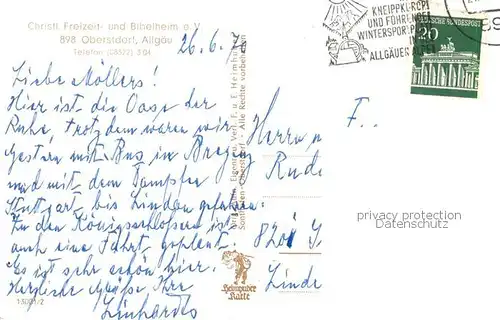 Christl. Freizeit- und Bibelheim e.V.
898 Oberstdorf, Allgäu
Telefon (08322) 3 04
26.6.70
KNEIPPKURORT
UND FÜHRENDER
WINTERSPORTPLATZ
ALLGÄUER ALPEN
DEUTSCHE BUNDESPOST
20
Liebe Möllers!
Hier ist die Oase der
Ruhe, trotzdem waren wir
gestern mit Bus in Bregenz
und mit dem Dampfer
Stuttgart bis Lindau gefahren.
Zu den Königsschlössern ist
auch eine Fahrt geplant.
Es ist sehr schön hier.
Herzliche Grüße Ihre
Linhardts
Eigent. u. Verl. F. u. E. Heimhuber
Sonthofen - Oberstdorf - Alle Rechte vorbehalten
Herrn
F..
Rud
8201
Linde
Heimhuber
Karte
privacy protection
VERONIKI